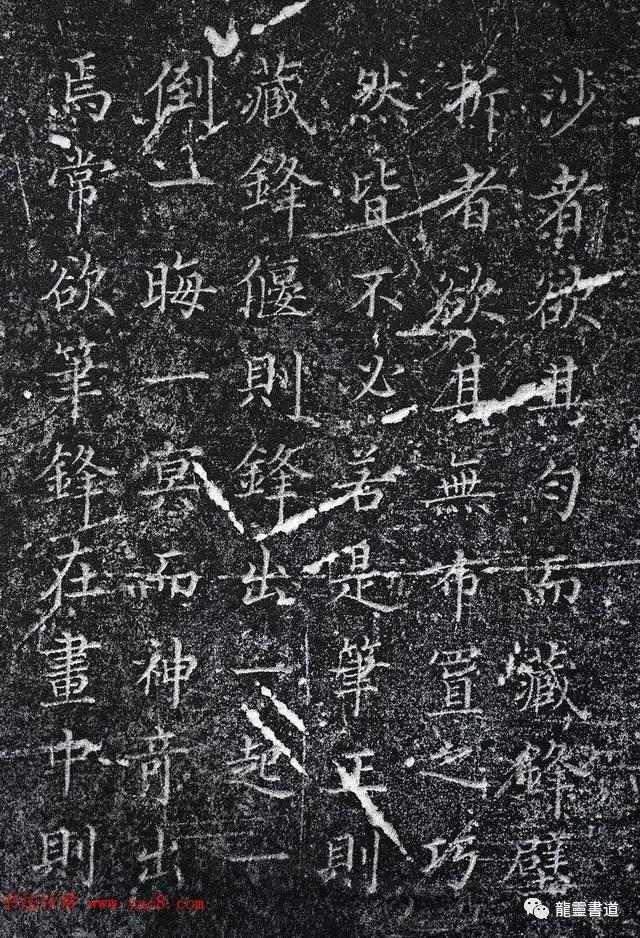 沙者欲其匀而藏鋒壁
拆者欲其無布置之巧
然皆不必若是筆正則
藏鋒偃則鋒出一起一
倒一晦一冥而神奇出
焉常欲筆鋒在畫中則
www.yac8.com
龍靈書道